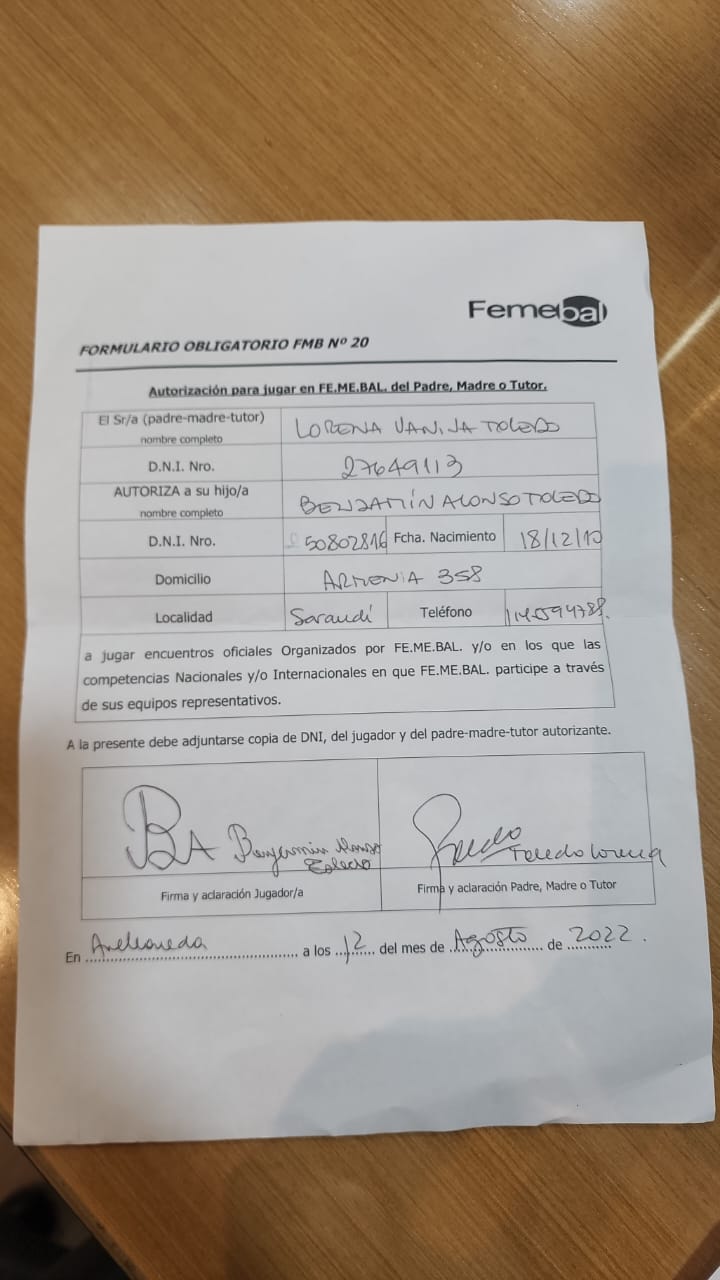 Femebal
FORMULARIO OBLIGATORIO FMB Nº 20
Autorización para jugar en FE.ME.BAL. del Padre, Madre o Tutor.
El Sr/a (padre-madre-tutor) LORENA VANINA TOLEDO
nombre completo
D.N.I. Nro. 27649113
AUTORIZA a su hijo/a BENJAMÍN ALONSO TOLEDO
nombre completo
D.N.I. Nro. 50802816 Fcha. Nacimiento 18/12/10
Domicilio ARMENIA 358
Localidad Sarandí Teléfono
a jugar encuentros oficiales Organizados por FE.ME.BAL. y/o en los que las
competencias Nacionales y/o Internacionales en que FE.ME.BAL. participe a través
de sus equipos representativos.
A la presente debe adjuntarse copia de DNI, del jugador y del padre-madre-tutor autorizante.
BA Benjamin Alonso Toledo
Toledo Lorena
Firma y aclaración Jugador/a Firma y aclaración Padre, Madre o Tutor
En Avellaneda a los 12 del mes de Agosto de 2022.